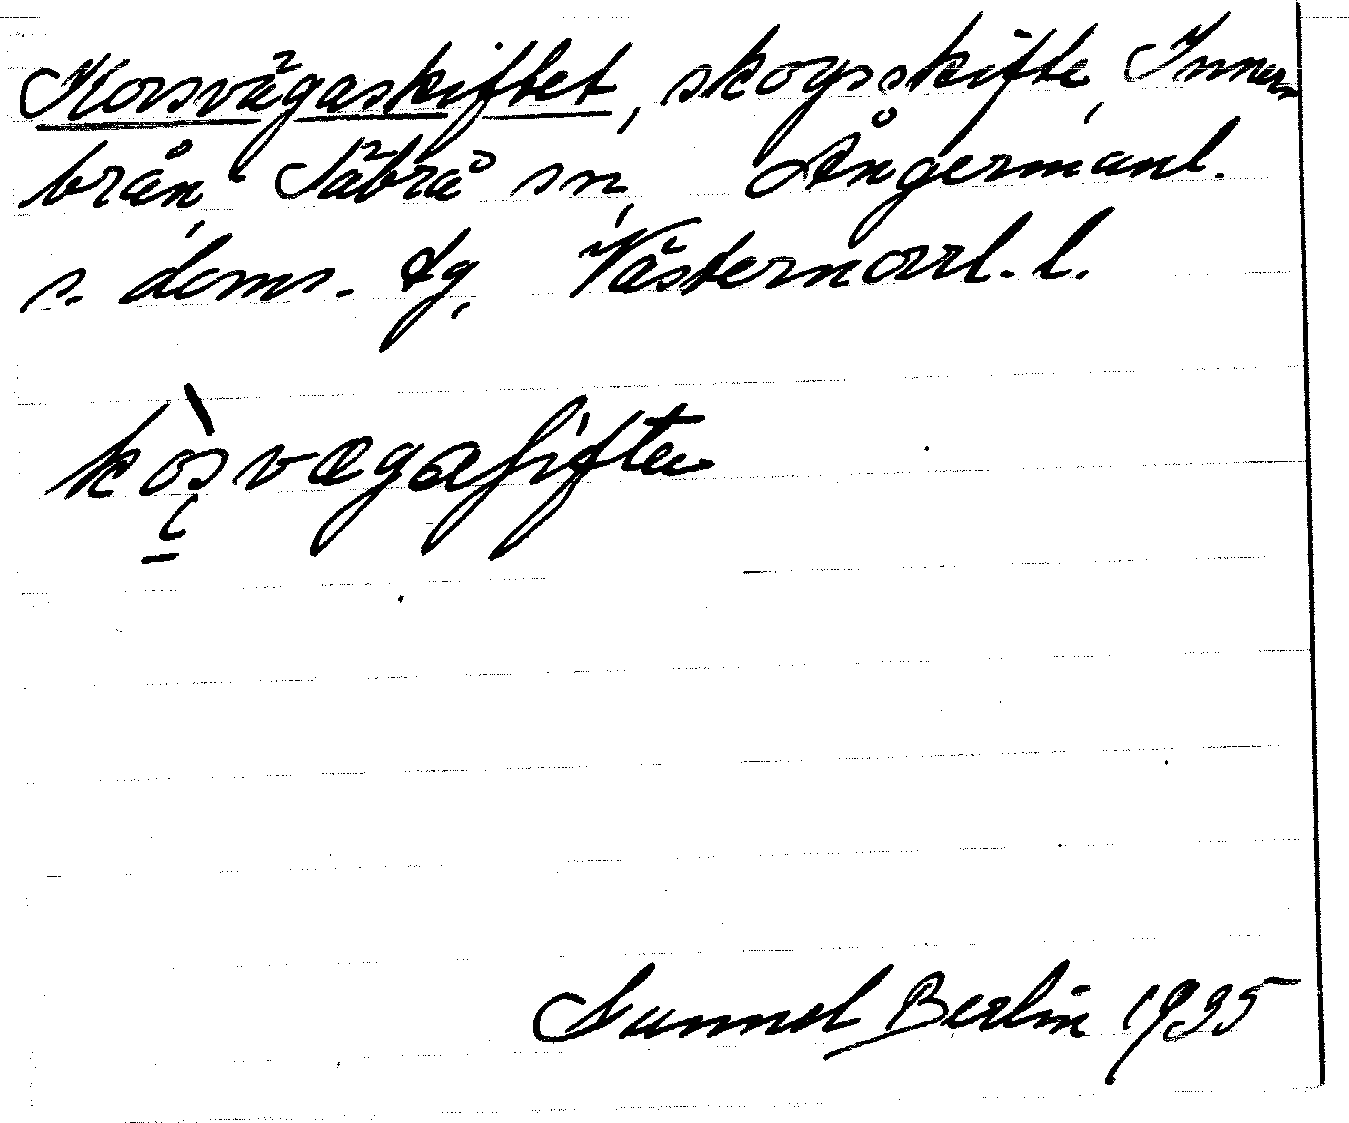 Korsvägaskiftet, skogsskifte, Inner-
brån, Säbrå sn, Ångermanl.
s. doms. tg, Västernorrl. l.
Gunnel Berlin 1935